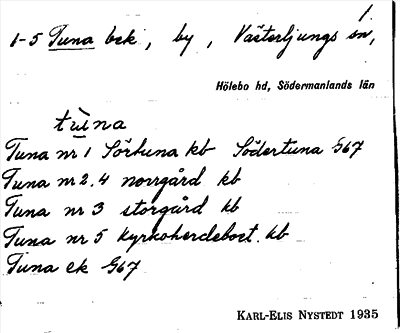 1.
1-5 Tuna bck, by, Västerljungs sn,
Hölebo hd, Södermanlands län
tùna
Tuna nr 1 Sörtuna kb Södertuna G67
Tuna nr 2.4 norrgård kb
Tuna nr 3 storgård kb
Tuna nr 5 kyrkoherdebost. kb
Tuna ek G67
KARL-ELIS NYSTEDT 1935